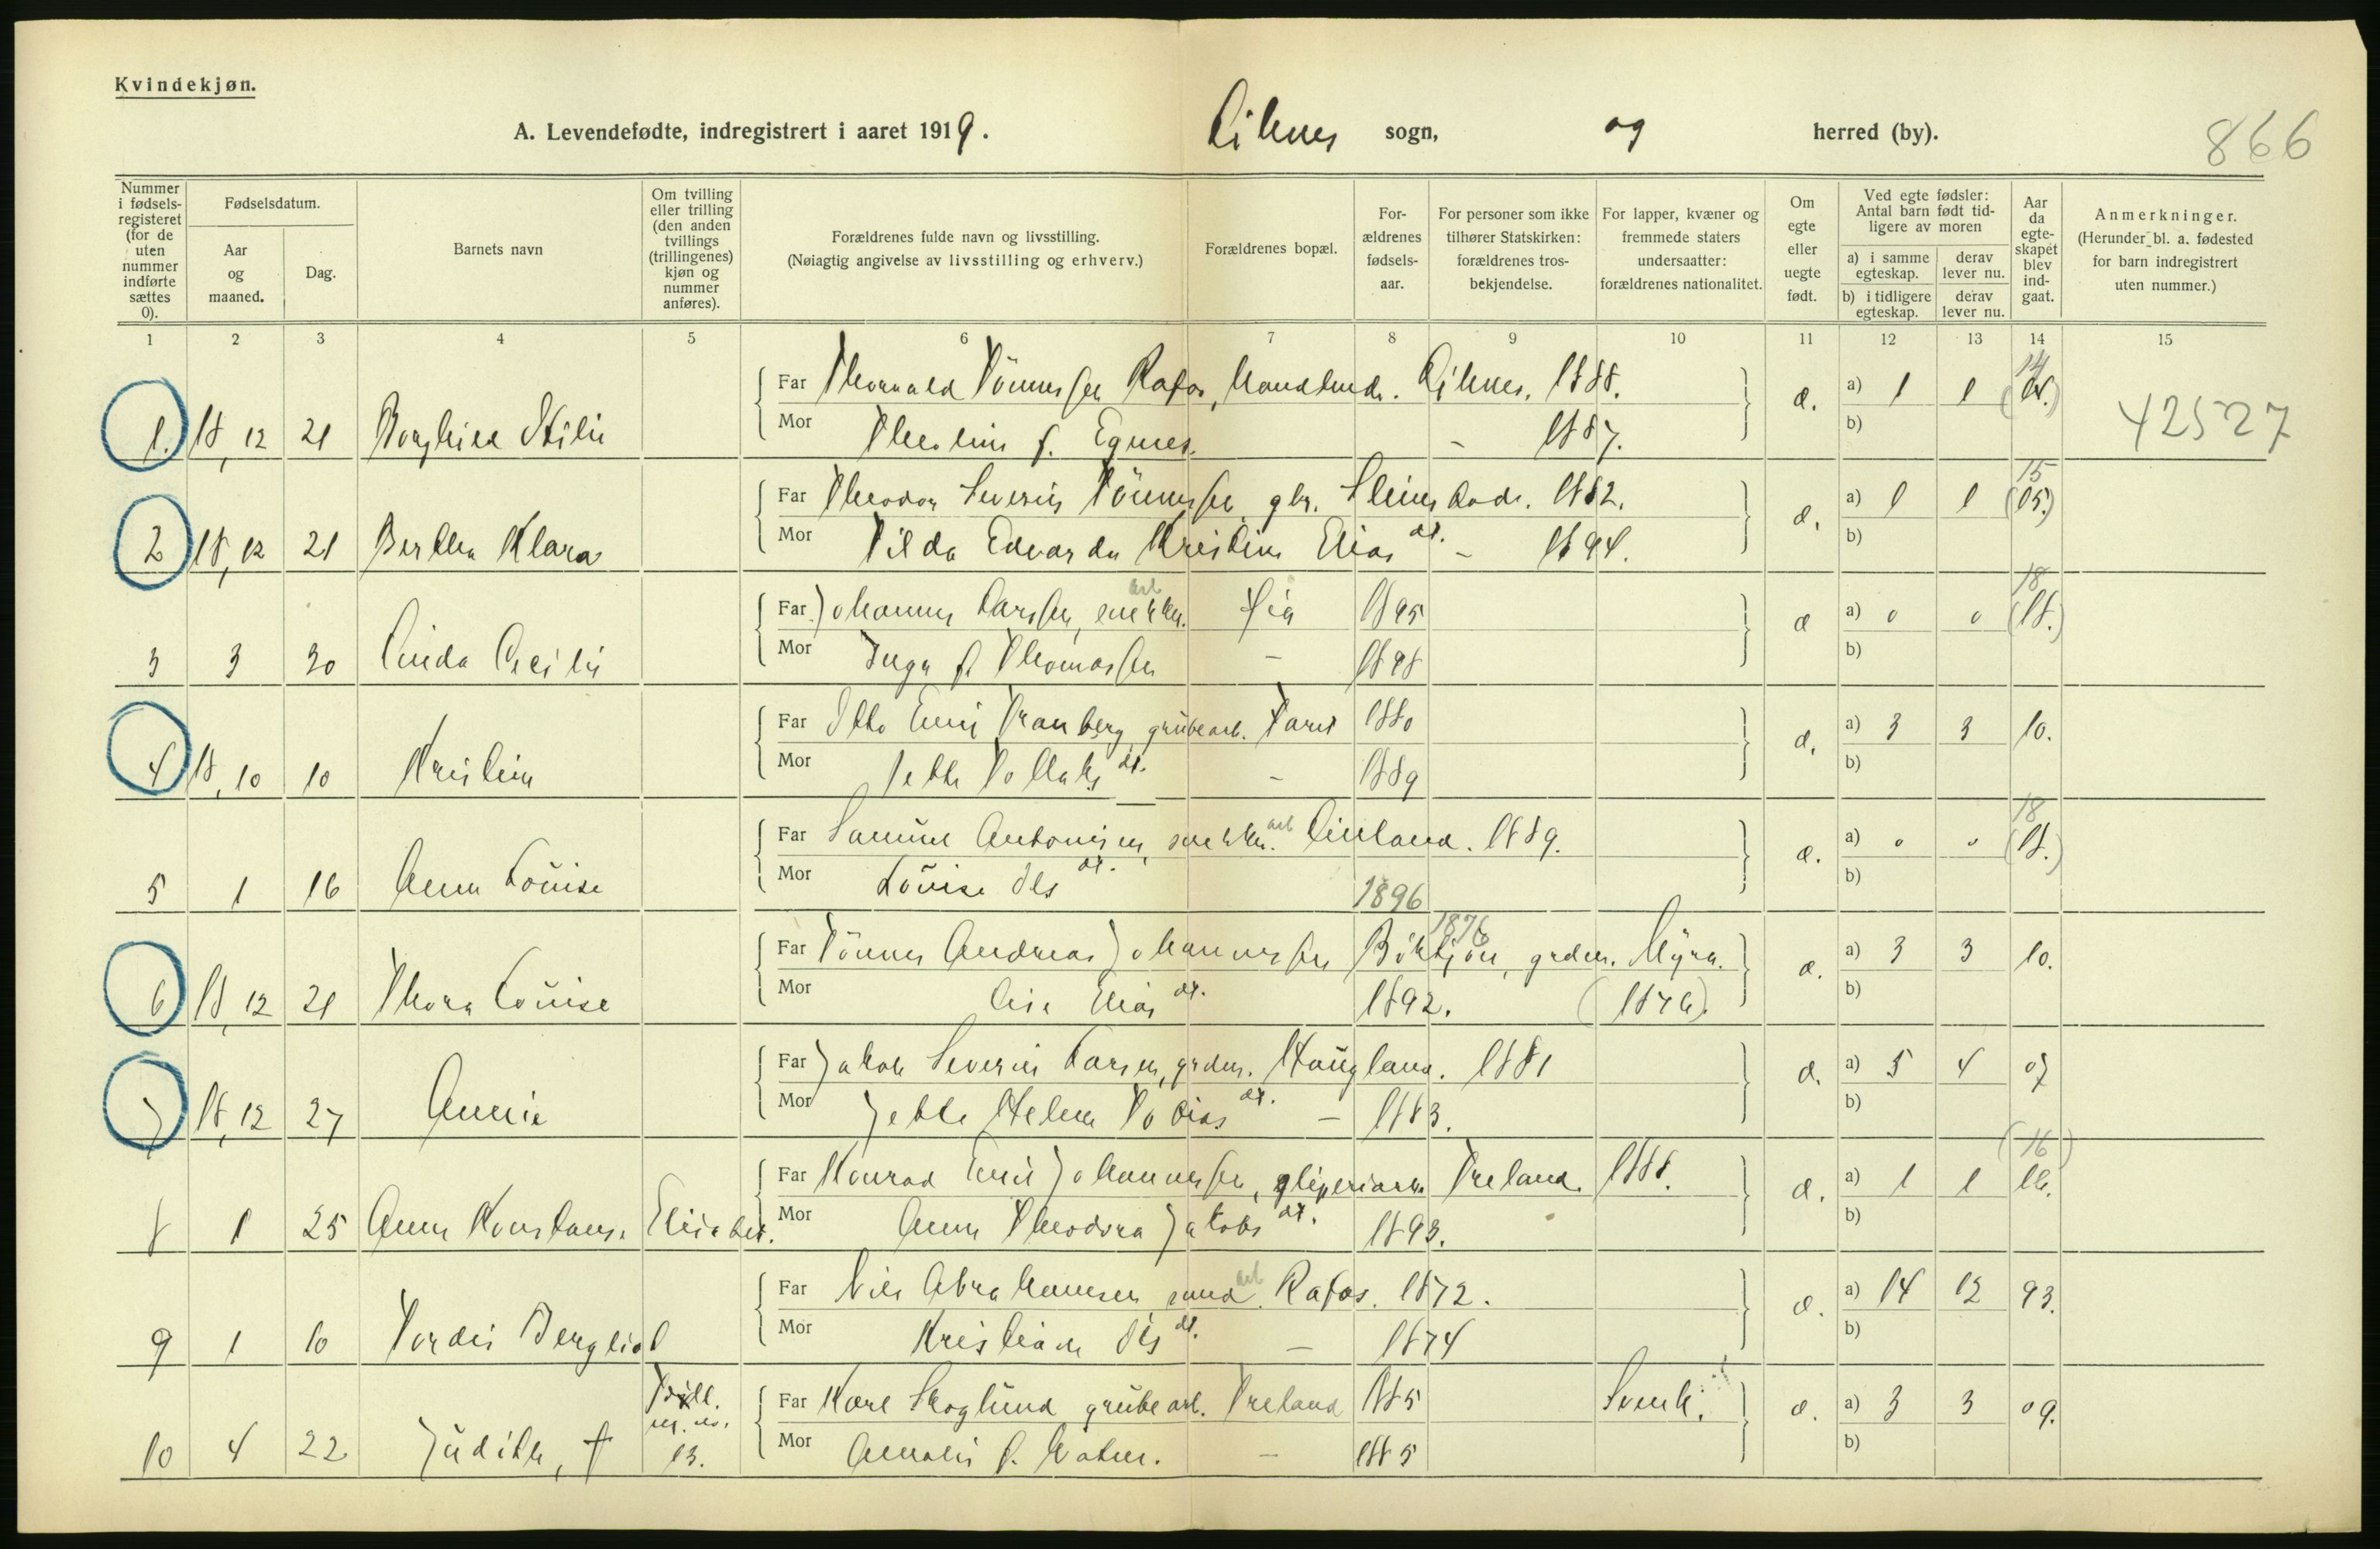 Kvindekjøn.
A. Levendefødte, indregistrert i aaret 1919. sogn, og herred (by).
866
Nummer i fødsels-registeret (for de uten nummer indførte sættes 0).
Fødselsdatum.
Aar og maaned.
Dag.
Barnets navn
Om tvilling eller trilling (den anden tvillings (trillingenes) kjøn og nummer anføres).
Forældrenes fulde navn og livsstilling.
(Nøiagtig angivelse av livsstilling og erhverv.)
Forældrenes bopæl.
For-ældrenes fødsels-aar.
For personer som ikke tilhører Statskirken: forældrenes tros-bekjendelse.
For lapper, kvæner og fremmede staters undersaatter: forældrenes nationalitet.
Om egte eller uegte født.
Ved egte fødsler: Antal barn født tid-ligere av moren
a) i samme egteskap.
derav lever nu.
b) i tidligere egteskap.
derav lever nu.
Aar da egte-skapet blev ind-gaat.
Anmerkninger.
(Herunder bl. a. fødested for barn indregistrert uten nummer.)
1 2 3 4 5 6 7 8 9 10 11 12 13 14 15
Far Rafos, 1888. a) 1 1 14
1. 18,12 21 Borghild Mor f. Egnes. - 1887. b)
42527
Far Theodor Severin Tönnessen, gbr. 1882. a) 1 1 15 (15.)
2 18,12 21 Bertha Klara Mor Tilda Edvarda Kristine Elias dt. - 1894. b)
Far Johannes Larssen, snekker. arb 1895 a) 0 0 18 (18.)
3 3 30 Mor Inga f. Thomassen - 1898 b)
Far Otto Emil Tranberg, grubearb. 1880 a) 3 3 10.
4 18,10 10 Kristine Mor dt. - 1889 b)
Far Samuel Antonisen, snekker. arb 1889. a) 0 0 18 (18.)
5 1 16 Anna Louise Mor Louise Ols dt. 1896 b)
Far Tönnes Andreas Johannessen 1876 grdm. Myra. a) 3 3 10.
6 18,12 21 Thora Louise Mor Elias dt. 1892. (1876). b)
Far Jakob Severin Larsen, grdm. Haugland. 1881 a) 5 4 07
7 18,12 27 Annie Mor Jette Helene Tobias dt. - 1883. b)
Far Konrad Emil Johannessen, Treland. 1888. a) 1 1 (16) 16.
8 1 25 Anna Konstanse Elisabet. Mor Anna Theodora Jakobs dt. 1893. b)
Far Nils Abrahamsen, arb Rafos. 1872. a) 14 12 93.
9 1 10 Tordis Bergliot Mor Kristiane Ols dt. - 1874 b)
Far Karl Skoglund, grubearb. Treland 1885 Svensk. a) 3 3 09.
10 4 22 Judith, † 13. Mor Amalie f. - 1885 b)